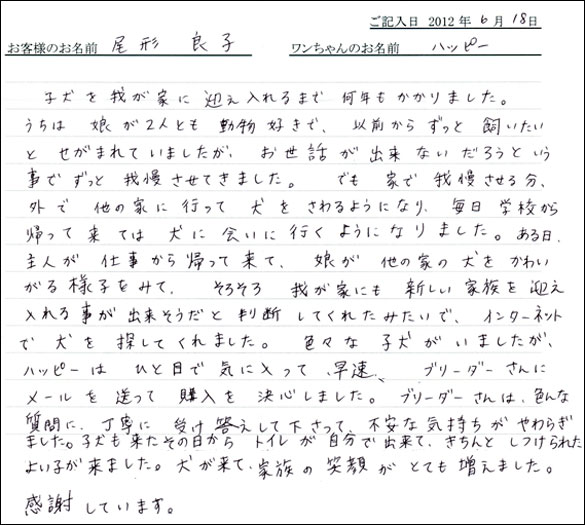 ご記入日 2012年6月18日
お客様のお名前 尾形 良子 ワンちゃんのお名前 ハッピー
子犬を我が家に迎え入れるまで何年もかかりました。
うちは娘が2人とも動物好きで、以前からずっと飼いたい
とせがまれていましたが、お世話が出来ないだろうという
事でずっと我慢させてきました。でも家で我慢させる分、
外で他の家に行って犬をさわるようになり、毎日学校から
帰って来ては犬に会いに行くようになりました。ある日、
主人が仕事から帰って来て、娘が他の家の犬をかわい
がる様子をみて、そろそろ我が家にも新しい家族を迎え
入れる事が出来そうだと判断してくれたみたいで、インターネット
で犬を探してくれました。色々な子犬がいましたが、
ハッピーはひと目で気に入って、早速、ブリーダーさんに
メールを送って購入を決心しました。ブリーダーさんは、色んな
質問に、丁寧に受け答えして下さって、不安な気持ちがやわらぎ
ました。子犬も来たその日からトイレが自分で出来て、きちんとしつけられた
よい子が来ました。犬が来て、家族の笑顔がとても増えました。
感謝しています。